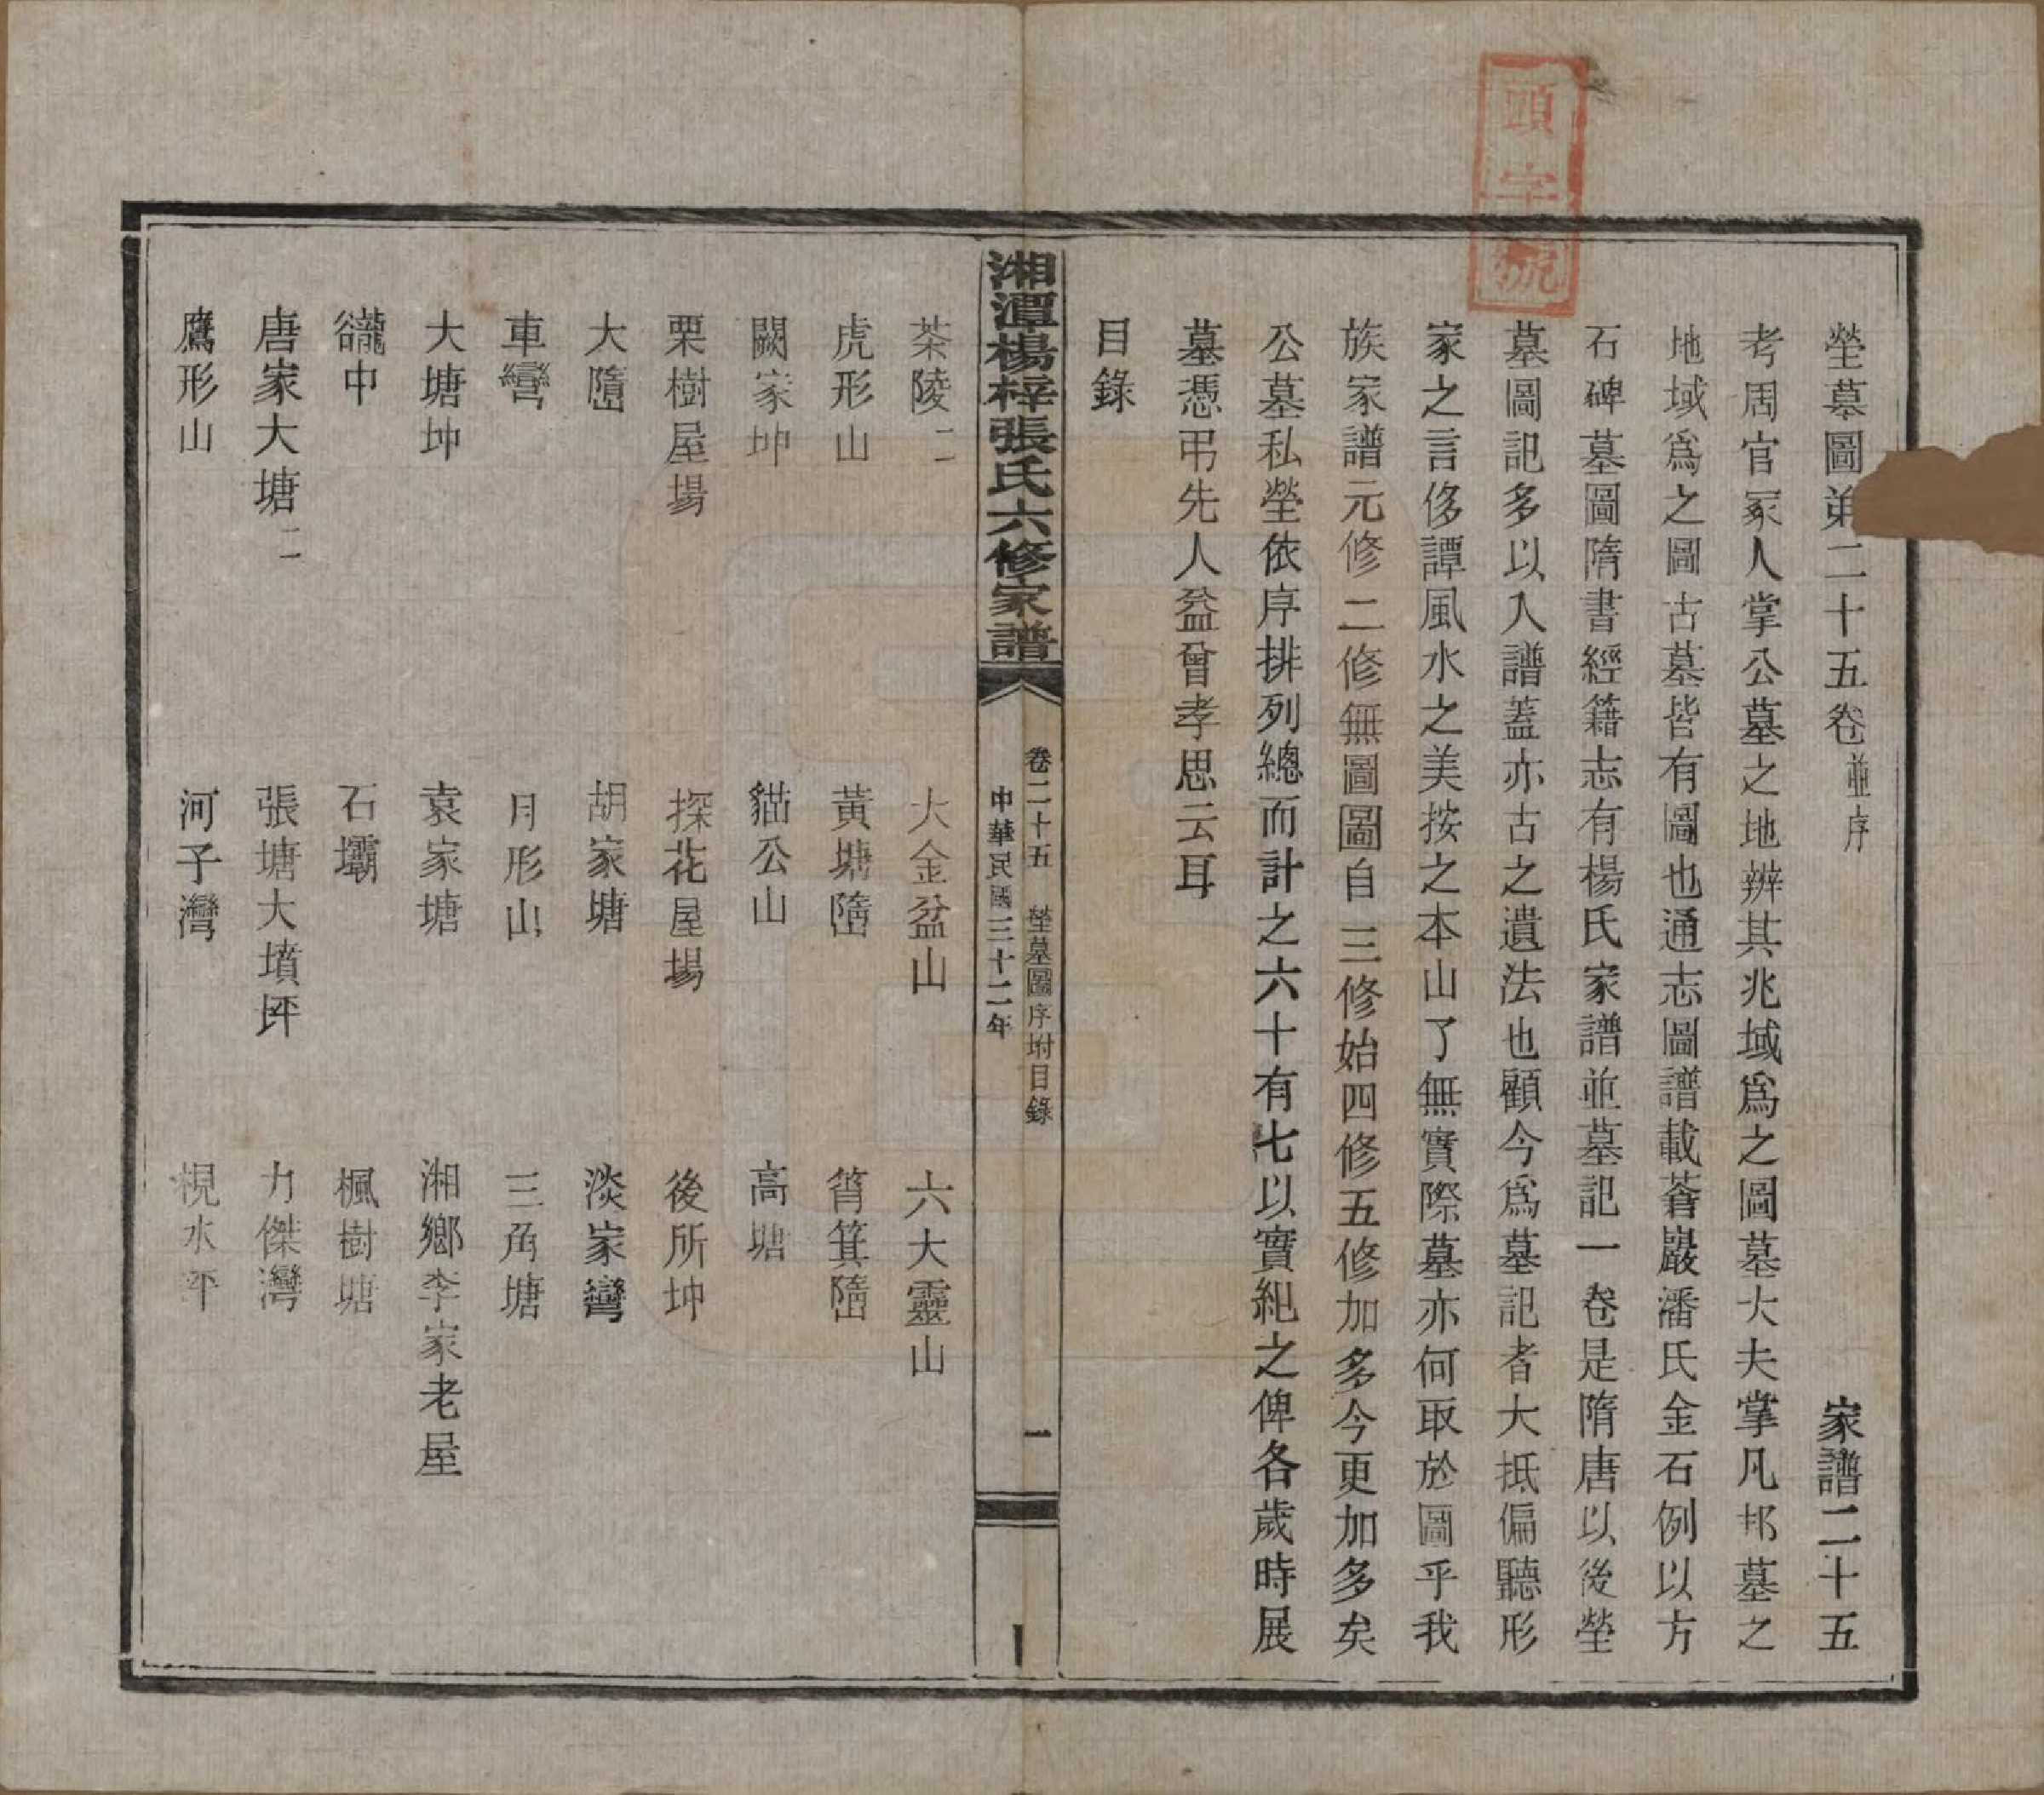 頭字號
塋墓圖弟二十五卷並序 家譜二十五
考周官冢人掌公墓之地辨其兆域爲之圖墓大夫掌凡邦墓之
地域爲之圖古墓皆有圖也通志圖譜載蒼巖潘氏金石例以方
石碑墓圖隋書經籍志有楊氏家譜並墓記一卷是隋唐以後塋
墓圖記多以入譜蓋亦古之遺法也顧今爲墓記者大抵偏聽形
家之言侈譚風水之美按之本山了無實際墓亦何取於圖乎我
族家譜元修二修無圖圖自三修始四修五修加多今更加多矣
公墓私塋依序排列總而計之六十有七以實紀之俾各歲時展
墓憑弔先人益曾孝思云耳
目錄
湘潭楊梓張氏六修家譜
卷二十五 塋墓圖序坿目錄 一
中華民國三十二年
茶陵二 大金盆山 六大靈山
虎形山 黃塘𡺾 筲箕𡺾
闕家坤 貓公山 高塘
栗樹屋場 探花屋場 後所坤
大𡺾 胡家塘 淡家彎
車彎 月形山 三角塘
大塘坤 袁家塘 湘鄉李家老屋
谾中 石壩 楓樹塘
唐家大塘二 張塘大墳坪 力傑灣
鷹形山 河子灣 梘水坪